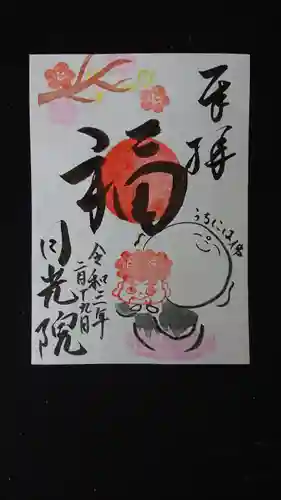 奉拝
福
うちには福
令和三年
二月十九日
月光院